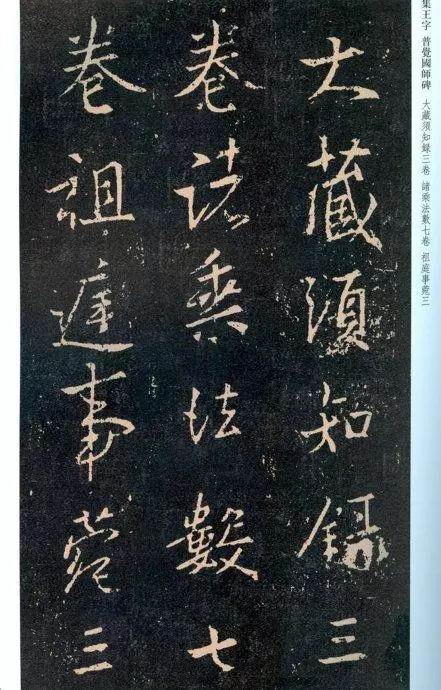 集王字 普覺國師碑 大藏須知録三卷 諸乘法數七卷 祖庭事菀三
大藏須知録三
卷諸乘法數七
卷祖遅事菀三